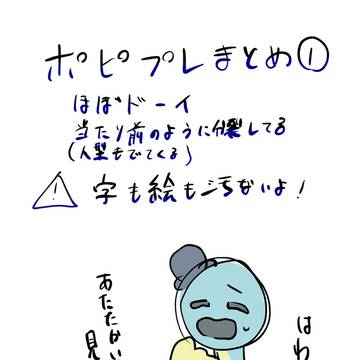 ポピプレまとめ①
ほぼドーイ
当たり前のように分裂してる
(人型もでてくる)
⚠ 字も絵も汚ないよ！
はわ
あたたかい
見